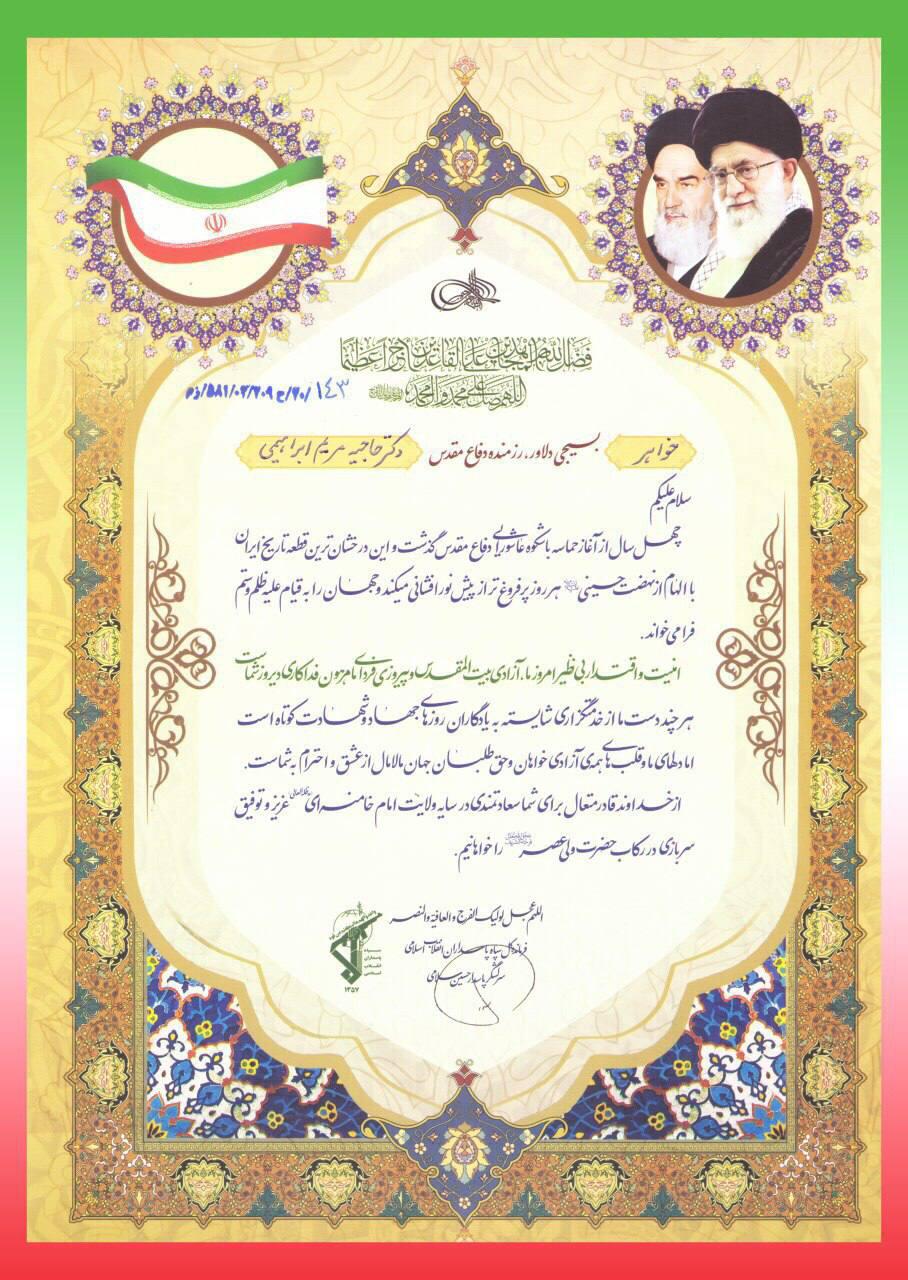 فضل الله المجاهدین علی القاعدین اجرا عظیما
اللهم صل علی محمد و آل محمد
۱۴۳
خواهر بسیجی دلاور، رزمنده دفاع مقدس دکتر حاجیه مریم ابراهیمی
سلام علیکم
چهل سال از آغاز حماسه باشکوه عاشورایی دفاع مقدس گذشت و این درخشان ترین قطعه تاریخ ایران
با الهام از نهضت حسینی هر روز پرفروغ تر از پیش نور افشانی میکند و جهان را به قیام علیه ظلم و ستم
فرا می خواند.
امنیت و اقتدار بی نظیر امروز ما، آزادی بیت المقدس و پیروزی فردای ما مرهون فداکاری دیروز شماست
هر چند دست ما از خدمتگزاری شایسته به یادگاران روزهای جهاد و شهادت کوتاه است
اما دلهای ما و قلب های همه ی آزادی خواهان و حق طلبان جهان مالامال از عشق و احترام به شماست.
از خداوند قادر متعال برای شما سعادتمندی در سایه ولایت امام خامنه ای عزیز و توفیق
سربازی در رکاب حضرت ولی عصر را خواهانیم.
اللهم عجل لولیک الفرج و العافیة و النصر
فرمانده کل سپاه پاسداران انقلاب اسلامی
سرلشگر پاسدار حسین سلامی
سپاه
پاسداران
انقلاب
اسلامی
۱۳۵۷